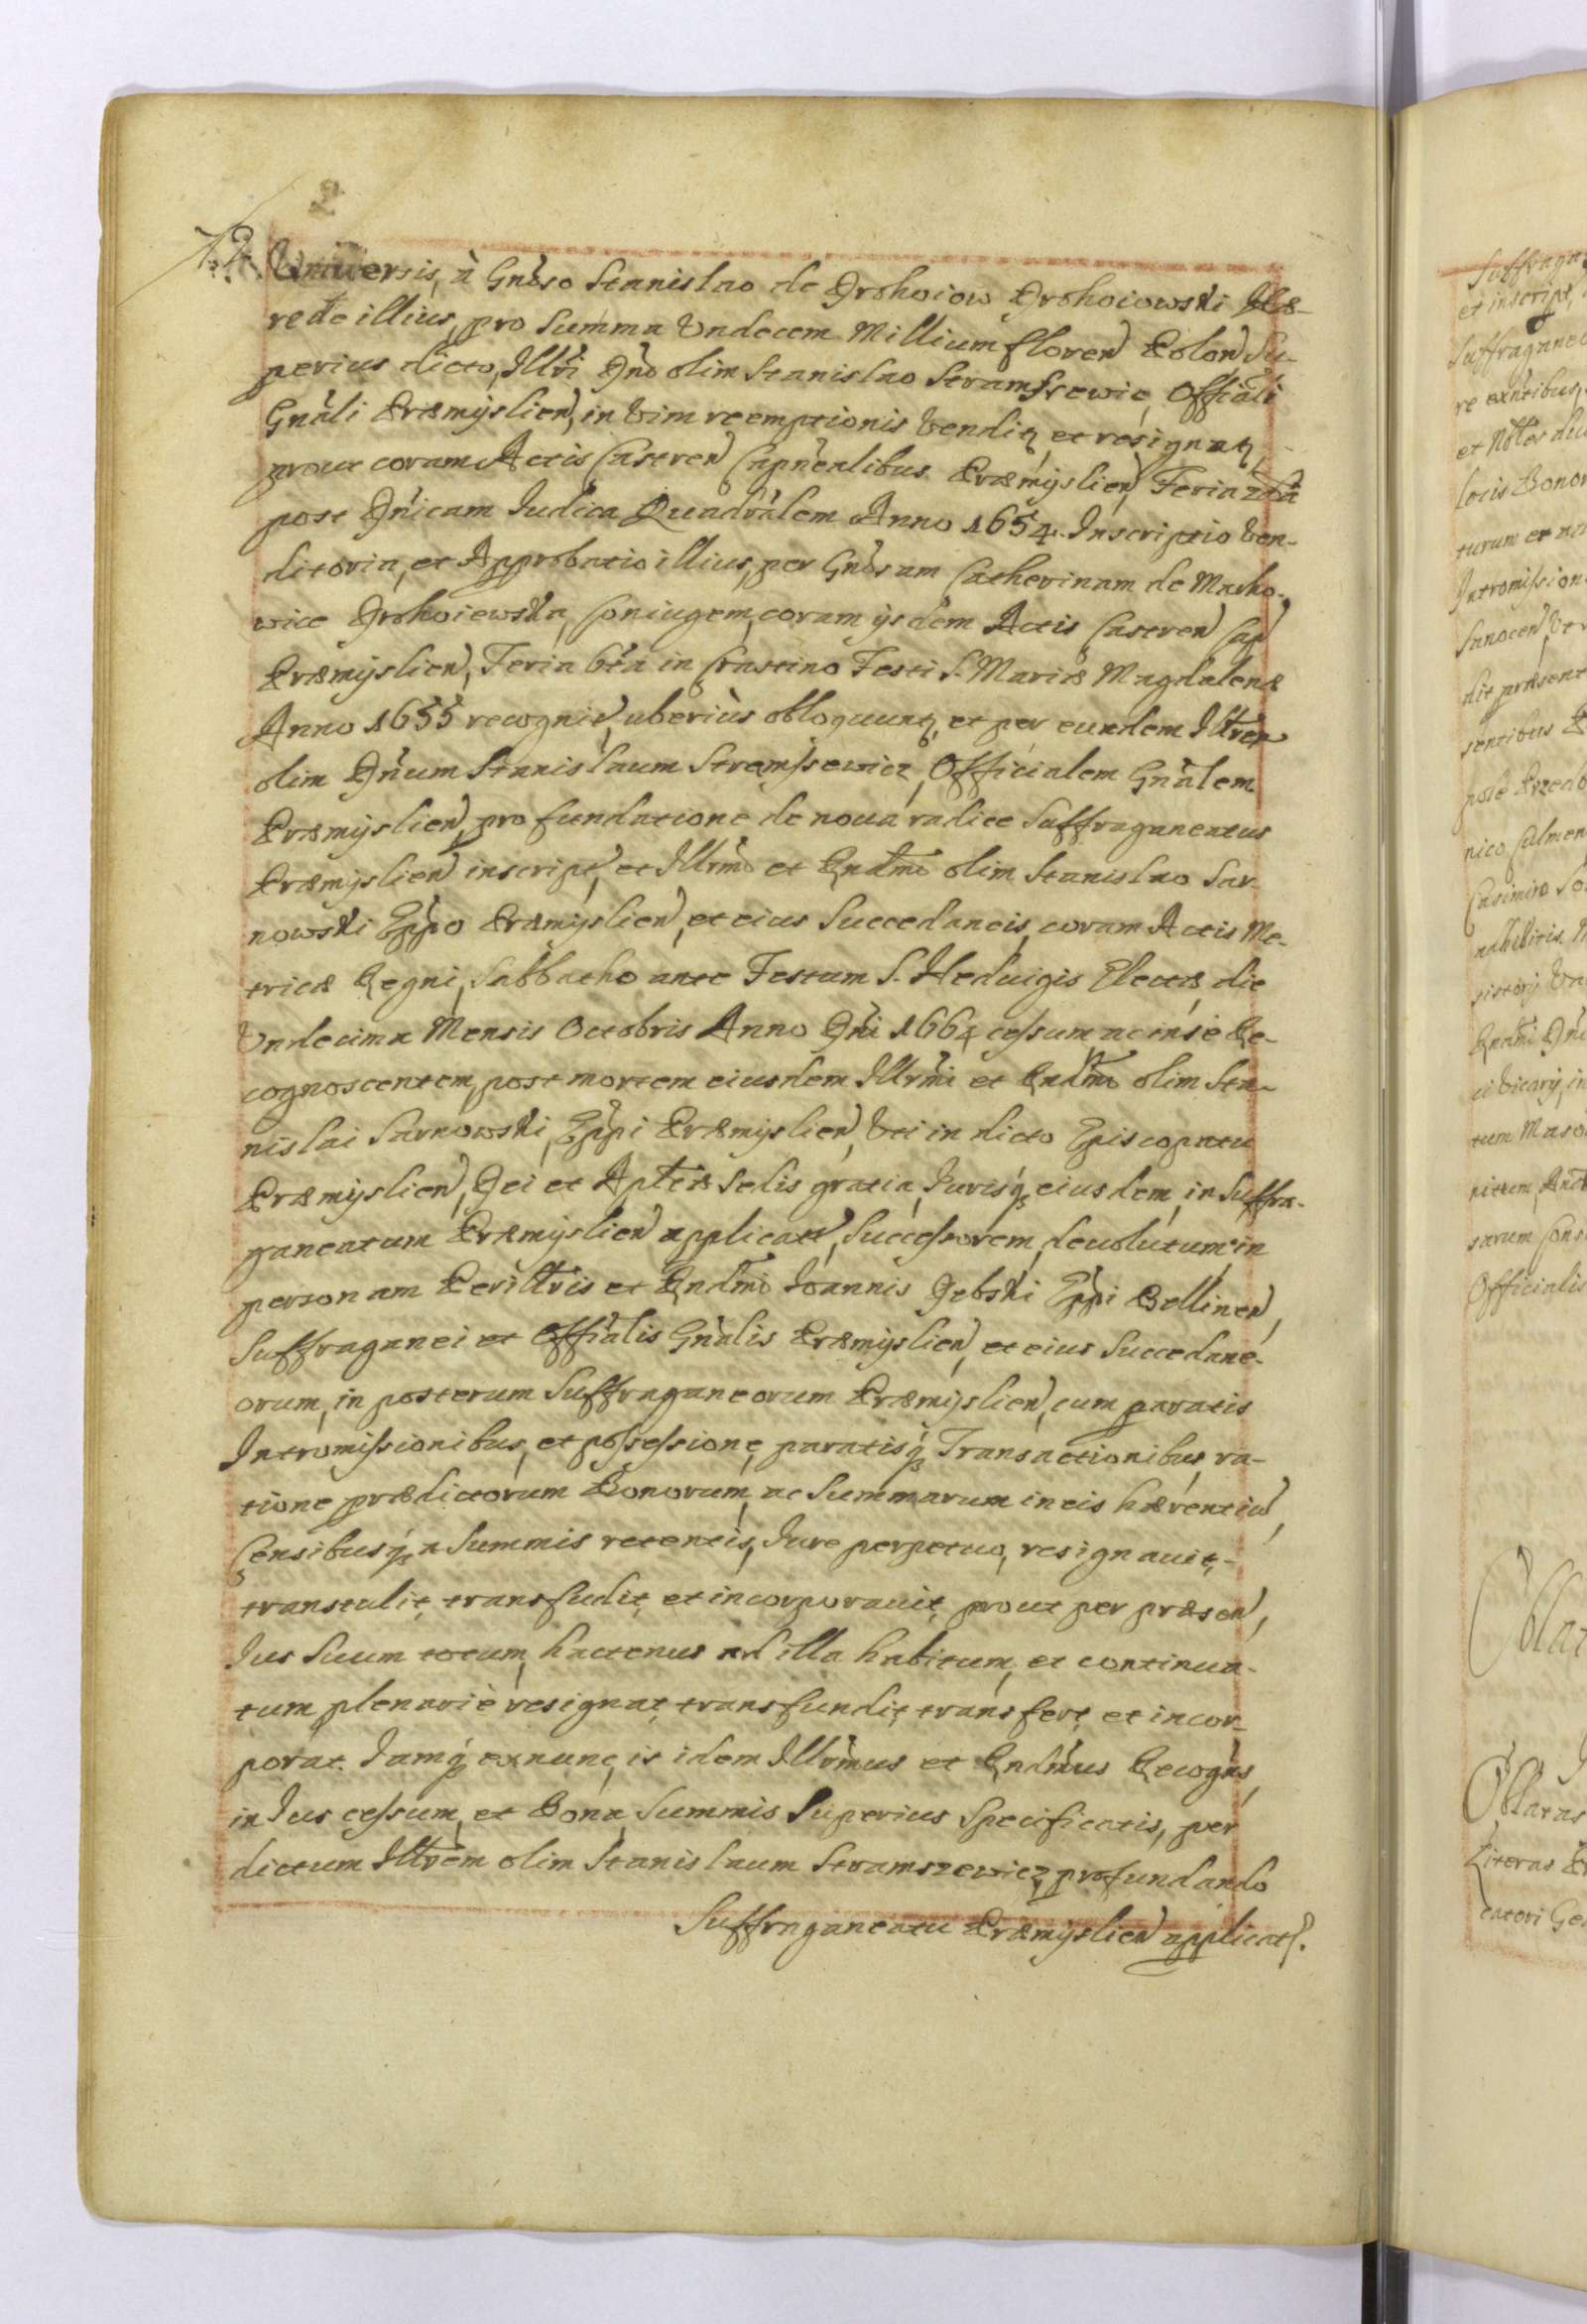 72.
Universis, à Gnoso Stanislao de Drohoiow Drohoiowski Hæ-
rede illius, pro Summa Undecem Millium floren Polon Su-
perius dicto, Illri Dno olim Stanislao Stramssewic, Officiali
Gnali Præmyslien, in Vim reemptionis vendit, et resignat,
prout coram Actis Castren Capnealibus Præmyslien, Feria 2da
post Dnicam Iudica Quadralem Anno 1654. Inscriptio Ven-
ditoria, et Approbatio illius, per Gnosam Catherinam de Macho-
wice Drohoiewska, Coniugem, coram ijsdem Actis Castren Cap
Præmyslien, Feria 6ta in Crastino Festi S. Mariæ Magdalenæ
Anno 1655 recognit, uberiùs obloquunt, et per eundem Illrem
olim Dnum Stanislaum Stremssewicz, Officialem Gnalem
Præmyslien, pro fundatione de noua radice Suffraganeatus
Præmyslien inscript, et Illrmo et Rndmo olim Stanislao Sar-
nowski Eppo Præmyslien, et eius Succedaneis, coram Actis Me-
tricæ Regni, Sabbatho ante Festum S. Heduigis Electæ, die
Undecima Mensis Octobris Anno Dni 1664 cessum ac in se Re-
cognoscentem, post mortem eiusdem Illrmi et Rndmi olim Sta-
nislai Sarnowski, Eppi Præmyslien, Uti in dicto Episcopatu
Præmyslien, Dei et Aplicæ Sedis gratia, Iurisq eiusdem, in Suffra-
ganeatum Præmyslien applicati, Successorem, deuolutum in
personam Perillris et Rndmi Ioannis Debski Eppi Bellinen,
Suffraganei et Offialis Gnalis Præmyslien, et eius Succedane-
orum, in posterum Suffraganeorum Præmyslien, cum paratis
Intromissionibus, et possessione, paratisq Transactionibus, ra-
tione prædictorum Bonorum, ac Summarum in eis hærentiu,
Censibusq a Summis retentis, Iure perpetuo, resignauit,-
transtulit, transfudit, et incorporauit, prout per præsen,
Ius Suum totum, hactenus ad illa habitum, et continua-
tum plenariè resignat, transfundit, transfert, et incor-
porat. Iamq exnunc, is idem Illrmus et Rndmus Recogns,
in Ius cessum, et Bona, Summis Superius Specificatis, per
dictum Illrem olim Stanislaum Stramszewicz, pro fundando
Suffraganeatu Præmyslien applicat.